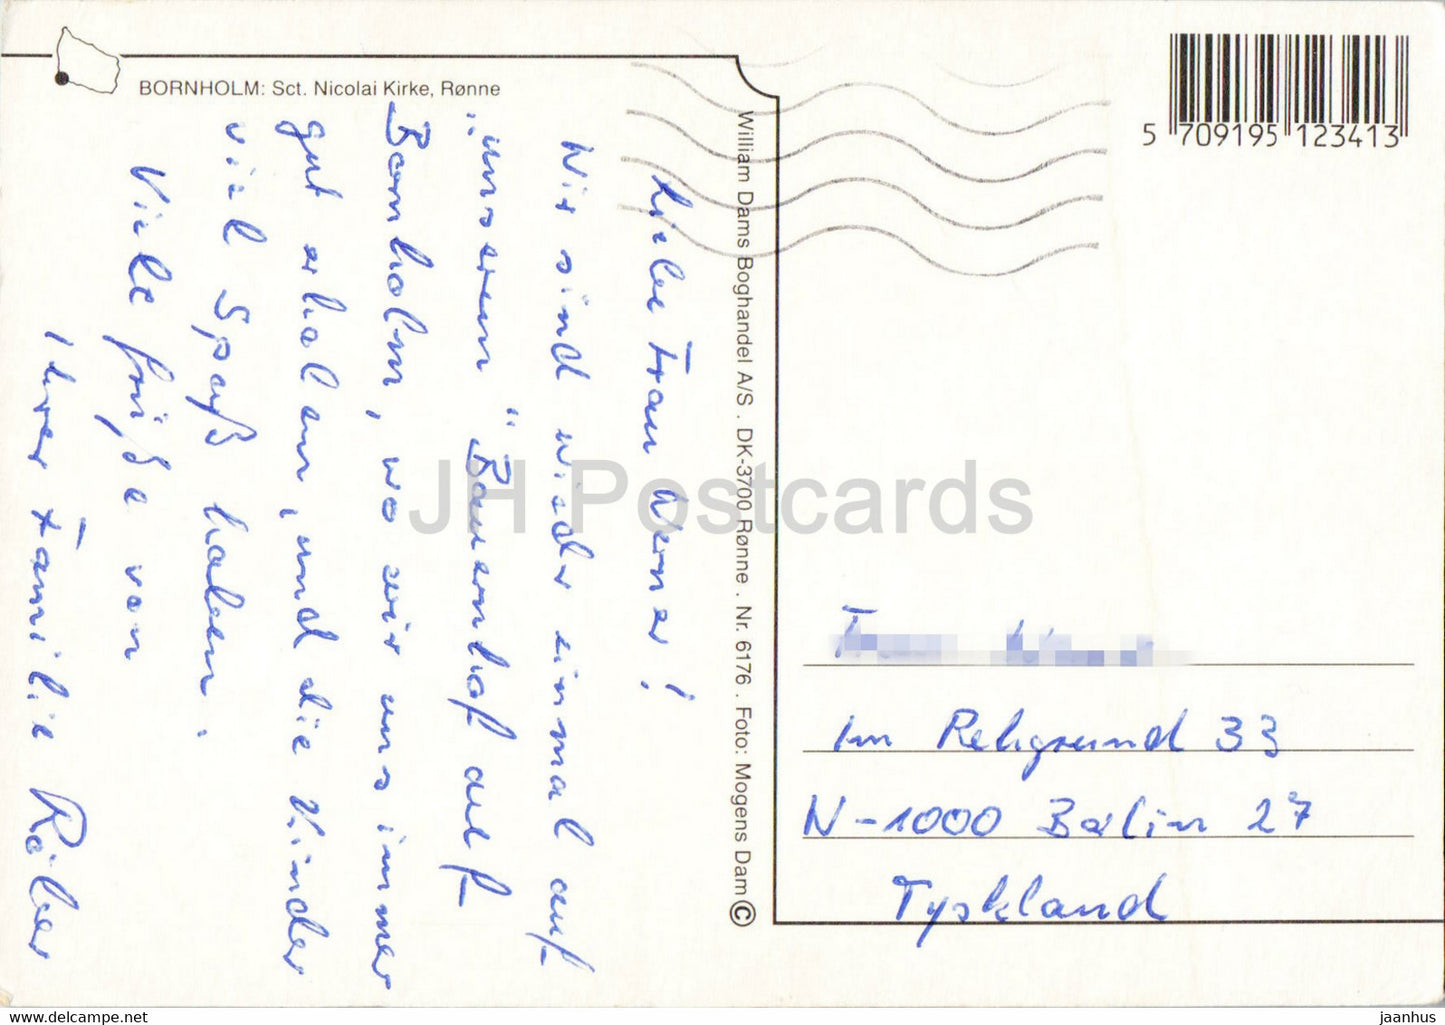 BORNHOLM: Sct. Nicolai Kirke, Rønne
Liebe Frau Werner!
Wir sind wieder einmal auf
„unserem" Bauernhof auf
Bornholm, wo wir uns immer
gut erholen, und die Kinder
viel Spaß haben.
Viele Grüße von
Ihrer Familie Röber
William Dams Boghandel A/S . DK-3700 Rønne . Nr. 6176 . Foto: Mogens Dam ©
5 709195 123413
Im Rehgrund 33
N-1000 Berlin 27
Tyskland
JH Postcards
www.delcampe.net
jaanhus